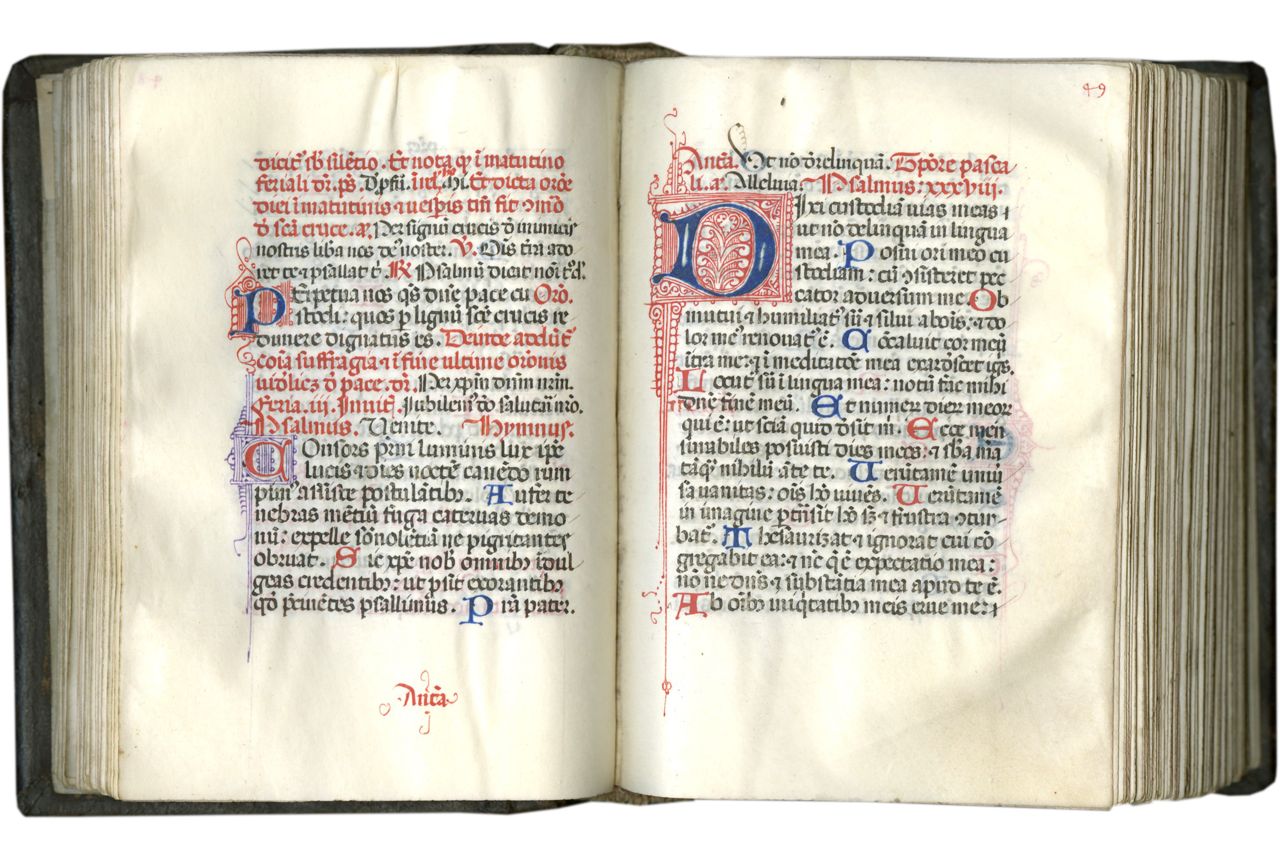 dicit᷑ sb̄ silētio. Et nota ꝙ ī matutino
feriali dr̄. ps̄.
diei ī matutinis ⁊ uesꝑis tm̄ fit
ꝺ̄ sc̄a cruce. a᷑. Per signū crucis ꝺ̄ inimicis
nostris liba nos de᷒ noster. V. Oīs tr̄a ado
ret te ⁊ psallat t̄. R Psalmū dicat
PErpetua nos qs̄ dn̄e pace cu Orō.
stodi: quos ꝑ lignū sc̄e crucis re
dimere dignatus es. Deinde
coīa suffragia ⁊ ī fine ultime orōnis
ꝺ̄ pace. dr̄. Per xp̄m dn̄m nr̄m.
feria. iii. Inuit̄. Iubilem᷒ ꝺ̄o salutari nr̄o.
Psalmus. Venite. Hymnus.
COnsors pr̄ni luminis lux ip̄e
lucis ⁊ dies noctē canēdo rum
pim᷒ assiste postulātibꝫ. Aufer te
nebras mētiū fuga cateruas demo
nū: expelle sōnolētiā ne pigritantes
obruat. Sic xp̄e nob᷒ omnibꝫ īdul
geas credentibꝫ: ut ꝓsit exorantibꝫ
qd̄ p̄cinētes psallimus. Pr̄a pater.
Antā.
49
Antā. Ut nō delinquā. Tp̄ore pasca
li. a᷑. Alleluia. Psalmus: xxxviii.
DIxi custodiā uias meas:
ut nō delinquā in lingua
mea. Posui ori meo cu
stodiam: cū ꝯsisteret pec
cator aduersum me. Ob
mutui ⁊ humiliat᷒ sū ⁊ silui a bōis: ⁊ do
lor me᷒ renouat᷒ ē. Cōcaluit cor meū
ītra me: ⁊ ī meditatōe mea exardescet igs̄.
Locut᷒ sū ī lingua mea: notū fac mihi
dn̄e finē meū. Et numeꝝ dieꝝ meoꝝ
qui ē: ut sciā quid desit m̄. Ecce men
surabiles posuisti dies meos: ⁊ sb̄a mā
tāqꝫ nihilū āte te. Uerūtamē uniū
sa uanitas: oīs hō uiuēs. Uerūtamē
in imagine ꝑtrāsit hō sꝫ ⁊ frustra ꝯtur
bat᷑. Thesaurizat ⁊ ignorat cui cō
gregabit ea: ⁊ nc̄ q̄ ē expectatio mea:
nōne dn̄s ⁊ substātia mea apud te ē.
Ab oībꝫ iniqtatibꝫ meis erue me: